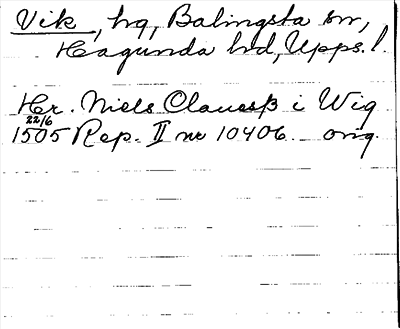 Vik, hg, Balingsta sn,
Hagunda hd, Upps. l.
Hr. Niels Clauesß i Wig
22/6
1505 Rep. II nr 10406 orig.